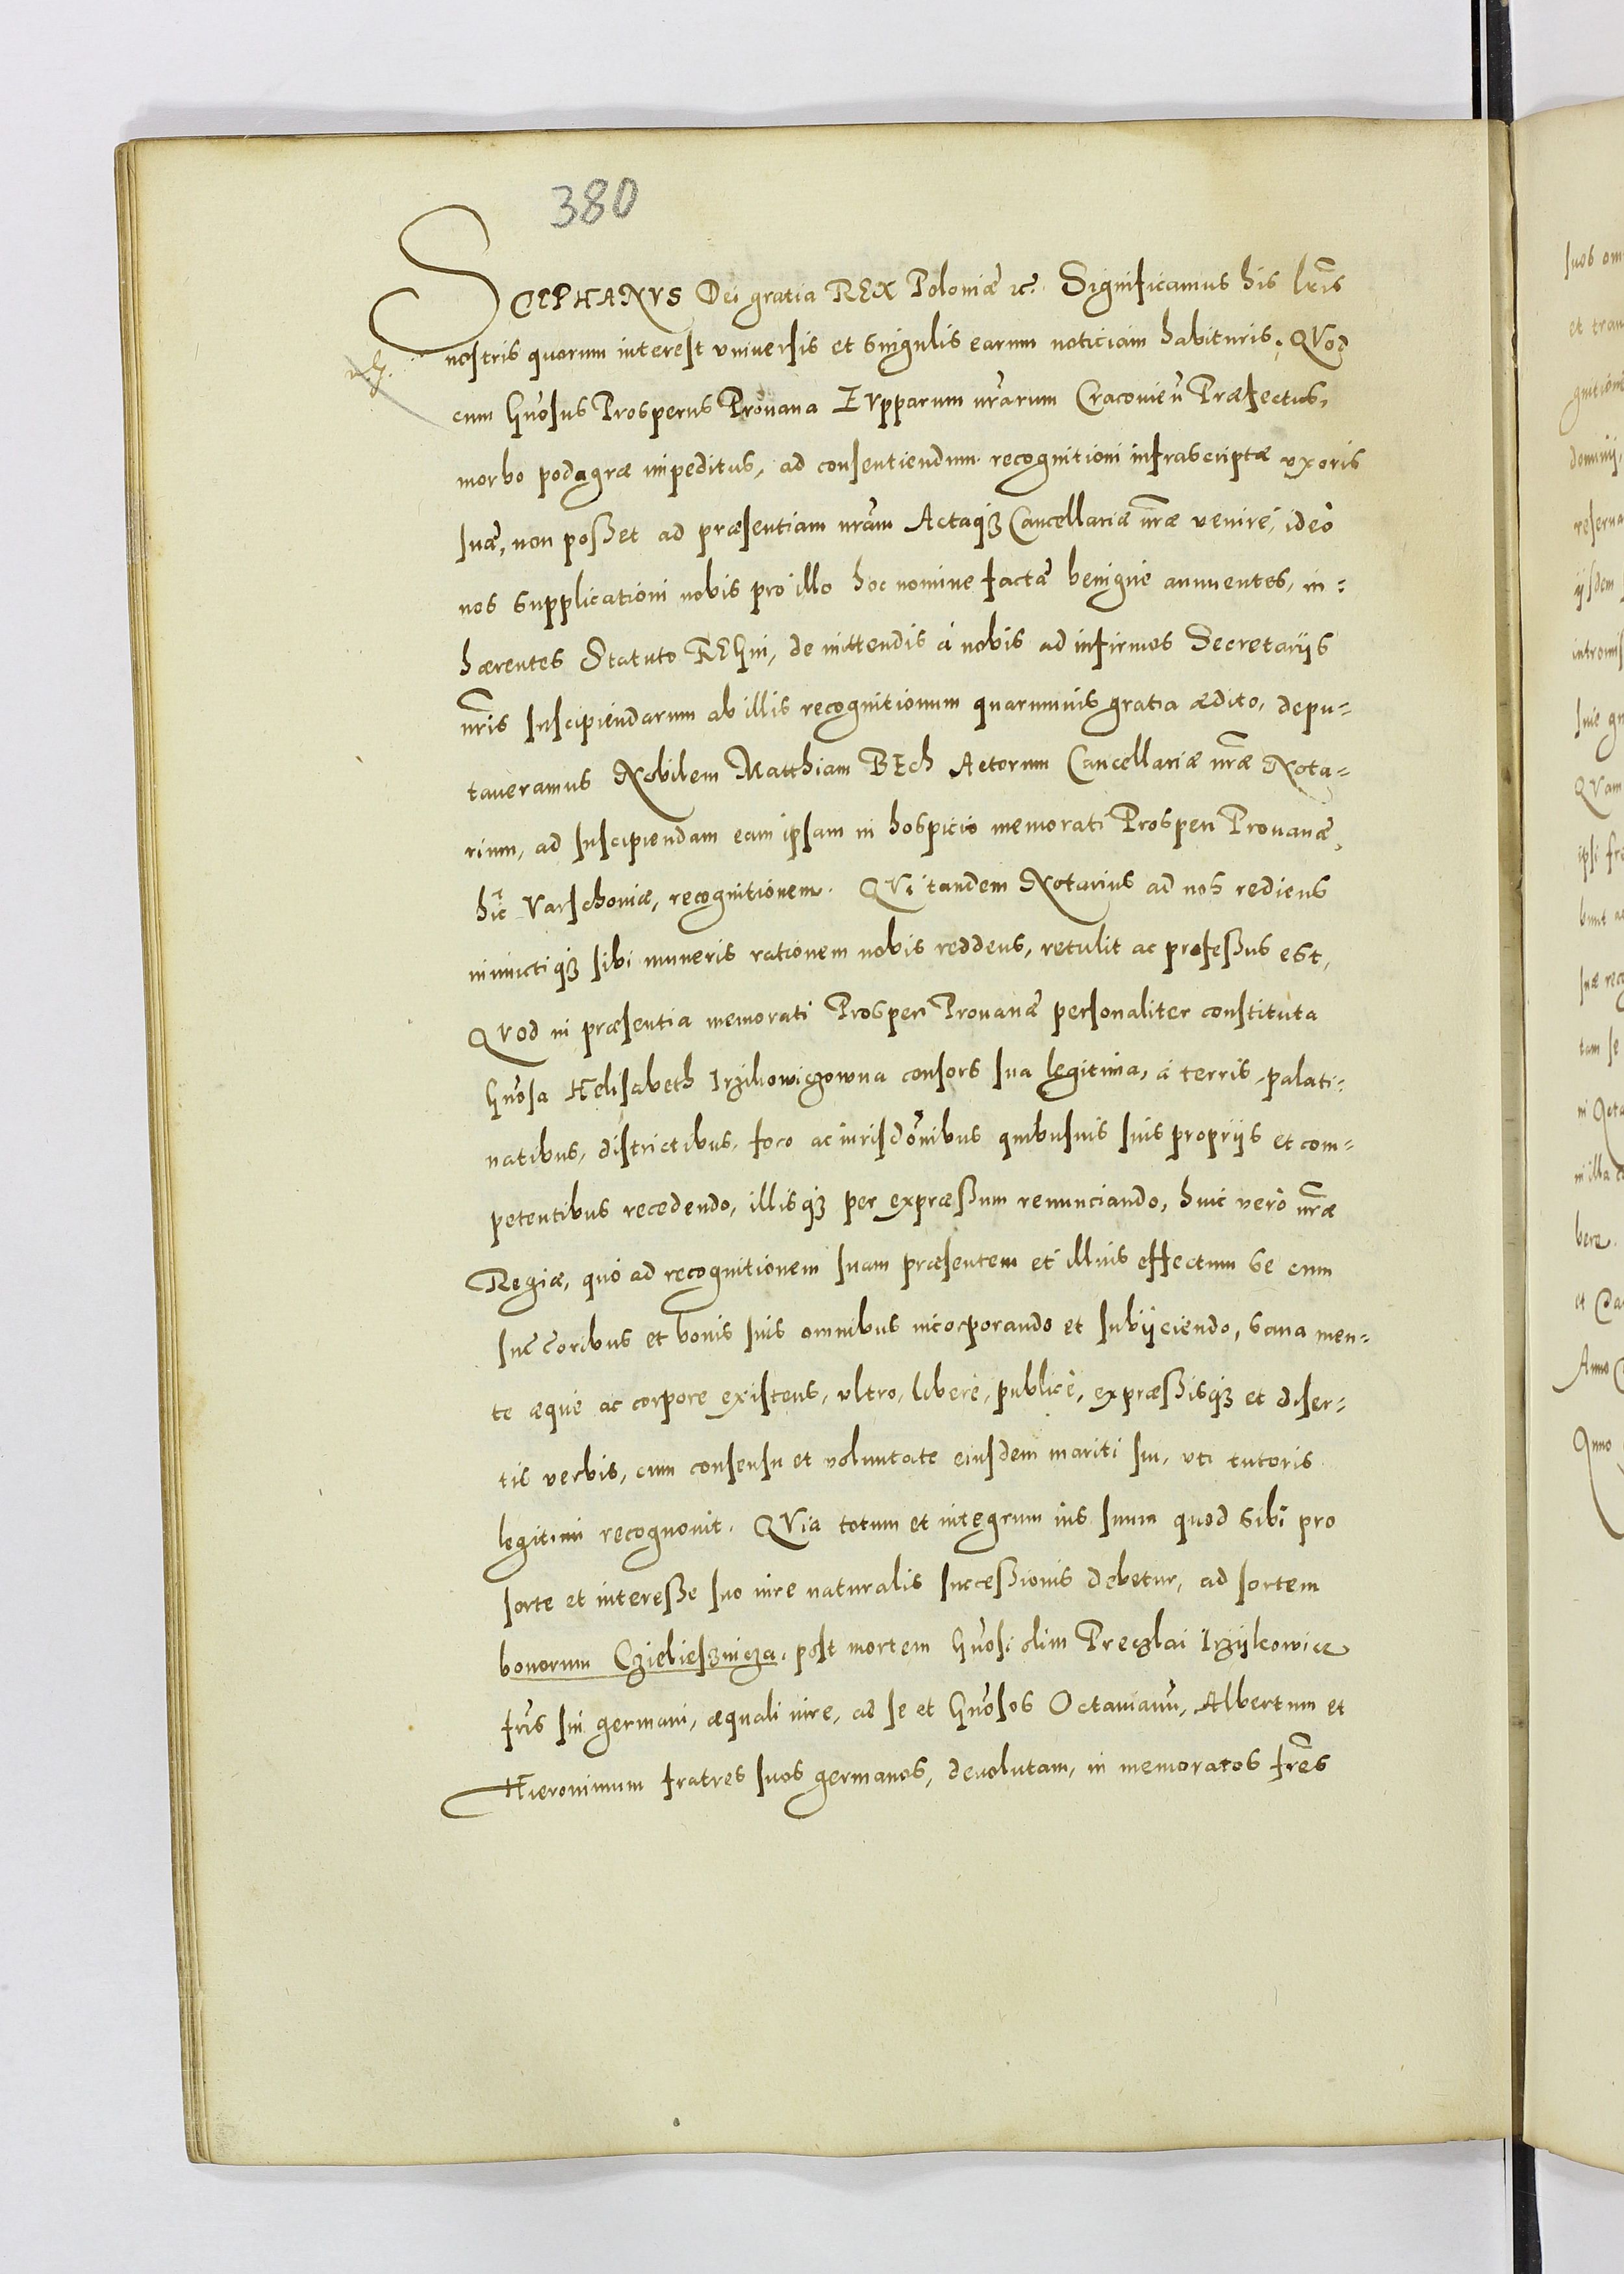 380
STEPHANVS Dei gratia REX Poloniæ etc. Significamus his lr̃is
nostris quorum interest vniuersis et singulis earum noticiam habituris. QVod
cum Gñosus Prosperus Prouana ZVpparum nr̃arum Cracovień Præfectus,
morbo podagræ impeditus, ad consentiendum recognitioni infrascriptæ vxoris
suæ, non posset ad præsentiam nr̃am Actaqȝ Cancellariæ nr̃æ venire, ideo
nos supplicationi nobis pro illo hoc nomine factæ benigne annuentes, in=
hærentes Statuto REGni, de mittendis à nobis ad infirmos Secretarijs
nr̃is suscipiendarum ab illis recognitionum quarumuis gratia ædito, depu=
taueramus Nobilem Matthiam BEch Actorum Cancellariæ nr̃æ Nota=
rium, ad suscipiendam eam ipsam in hospicio memorati Prosperi Prouanæ,
hic Varschouiæ, recognitionem. QVi tandem Notarius ad nos rediens
iniunctiqȝ sibi muneris rationem nobis reddens, retulit ac professus est,
QVod in præsentia memorati Prosperi Prouanæ personaliter constituta
Gñosa Helisabeth Irzikowiczowna consors sua legitima, à terris, palati=
natibus, districtibus, foro ac iurisdõnibus quibusuis suis proprijs et com=
petentibus recedendo, illisqȝ per expræssum renunciando, huic verò nr̃æ
Regiæ, quó ad recognitionem suam præsentem et illius effectum se cum
succ̃oribus et bonis suis omnibus incorporando et subijciendo, sana men=
te æquè ac corpore existens, vltro, liberè, publicè, expræssisqȝ et diser=
tis verbis, cum consensu et voluntate eiusdem mariti sui, vti tutoris
legitimi recognouit. QVia totum et integrum ius suum quod sibi pro
sorte et interesse suo iure naturalis successionis debetur, ad sortem
bonorum Czieliesznicza, post mortem Gñosi olim Preczlai Irzÿkowice
fr̃is sui germani, æquali iure, ad se et Gñosos Octauianũ, Albertum et
Hieronimum fratres suos germanos, deuolutam, in memoratos fr̃es